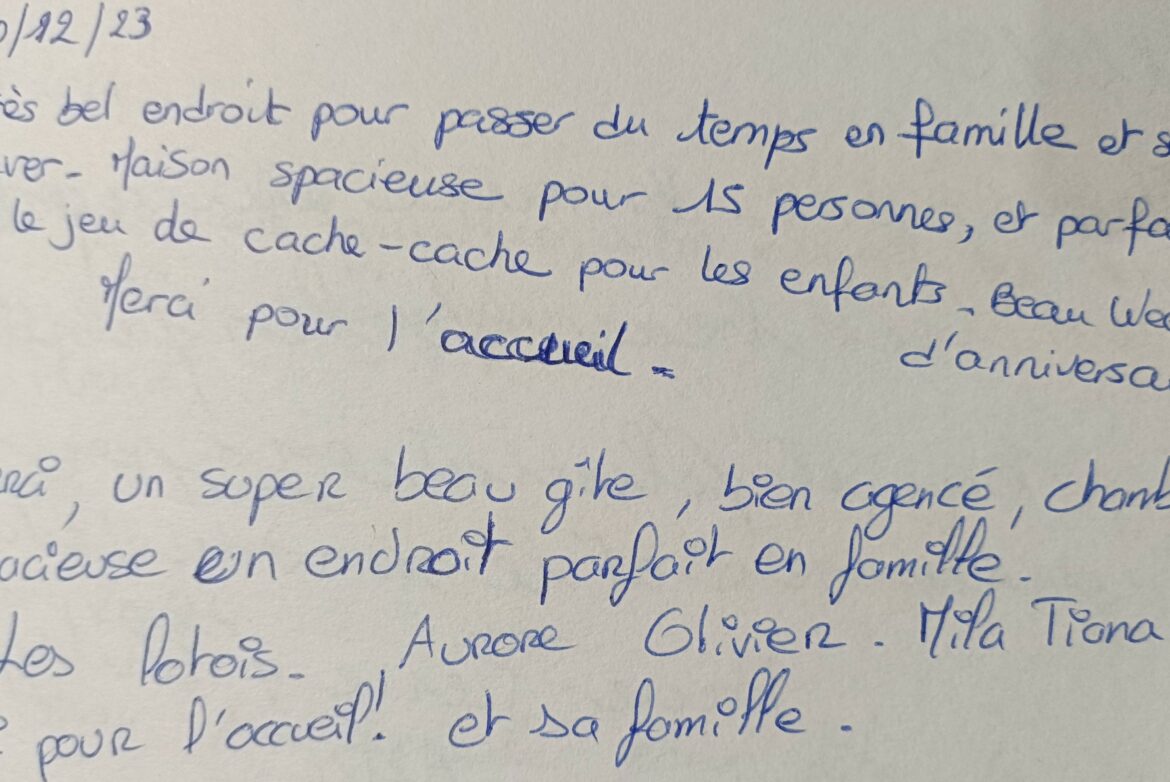 /12/23
ès bel endroit pour passer du temps en famille et s
ver - Maison spacieuse pour 15 personnes, et parfa
le jeu de cache-cache pour les enfants - Beau Wee
Merci pour l'accueil -
d'anniversa
, un super beau gîte, bien agencé, chamb
acieuse un endroit parfait en famille.
Les Potois - Aurore Olivier. Mila Tiana
pour l'accueil! et sa famille.